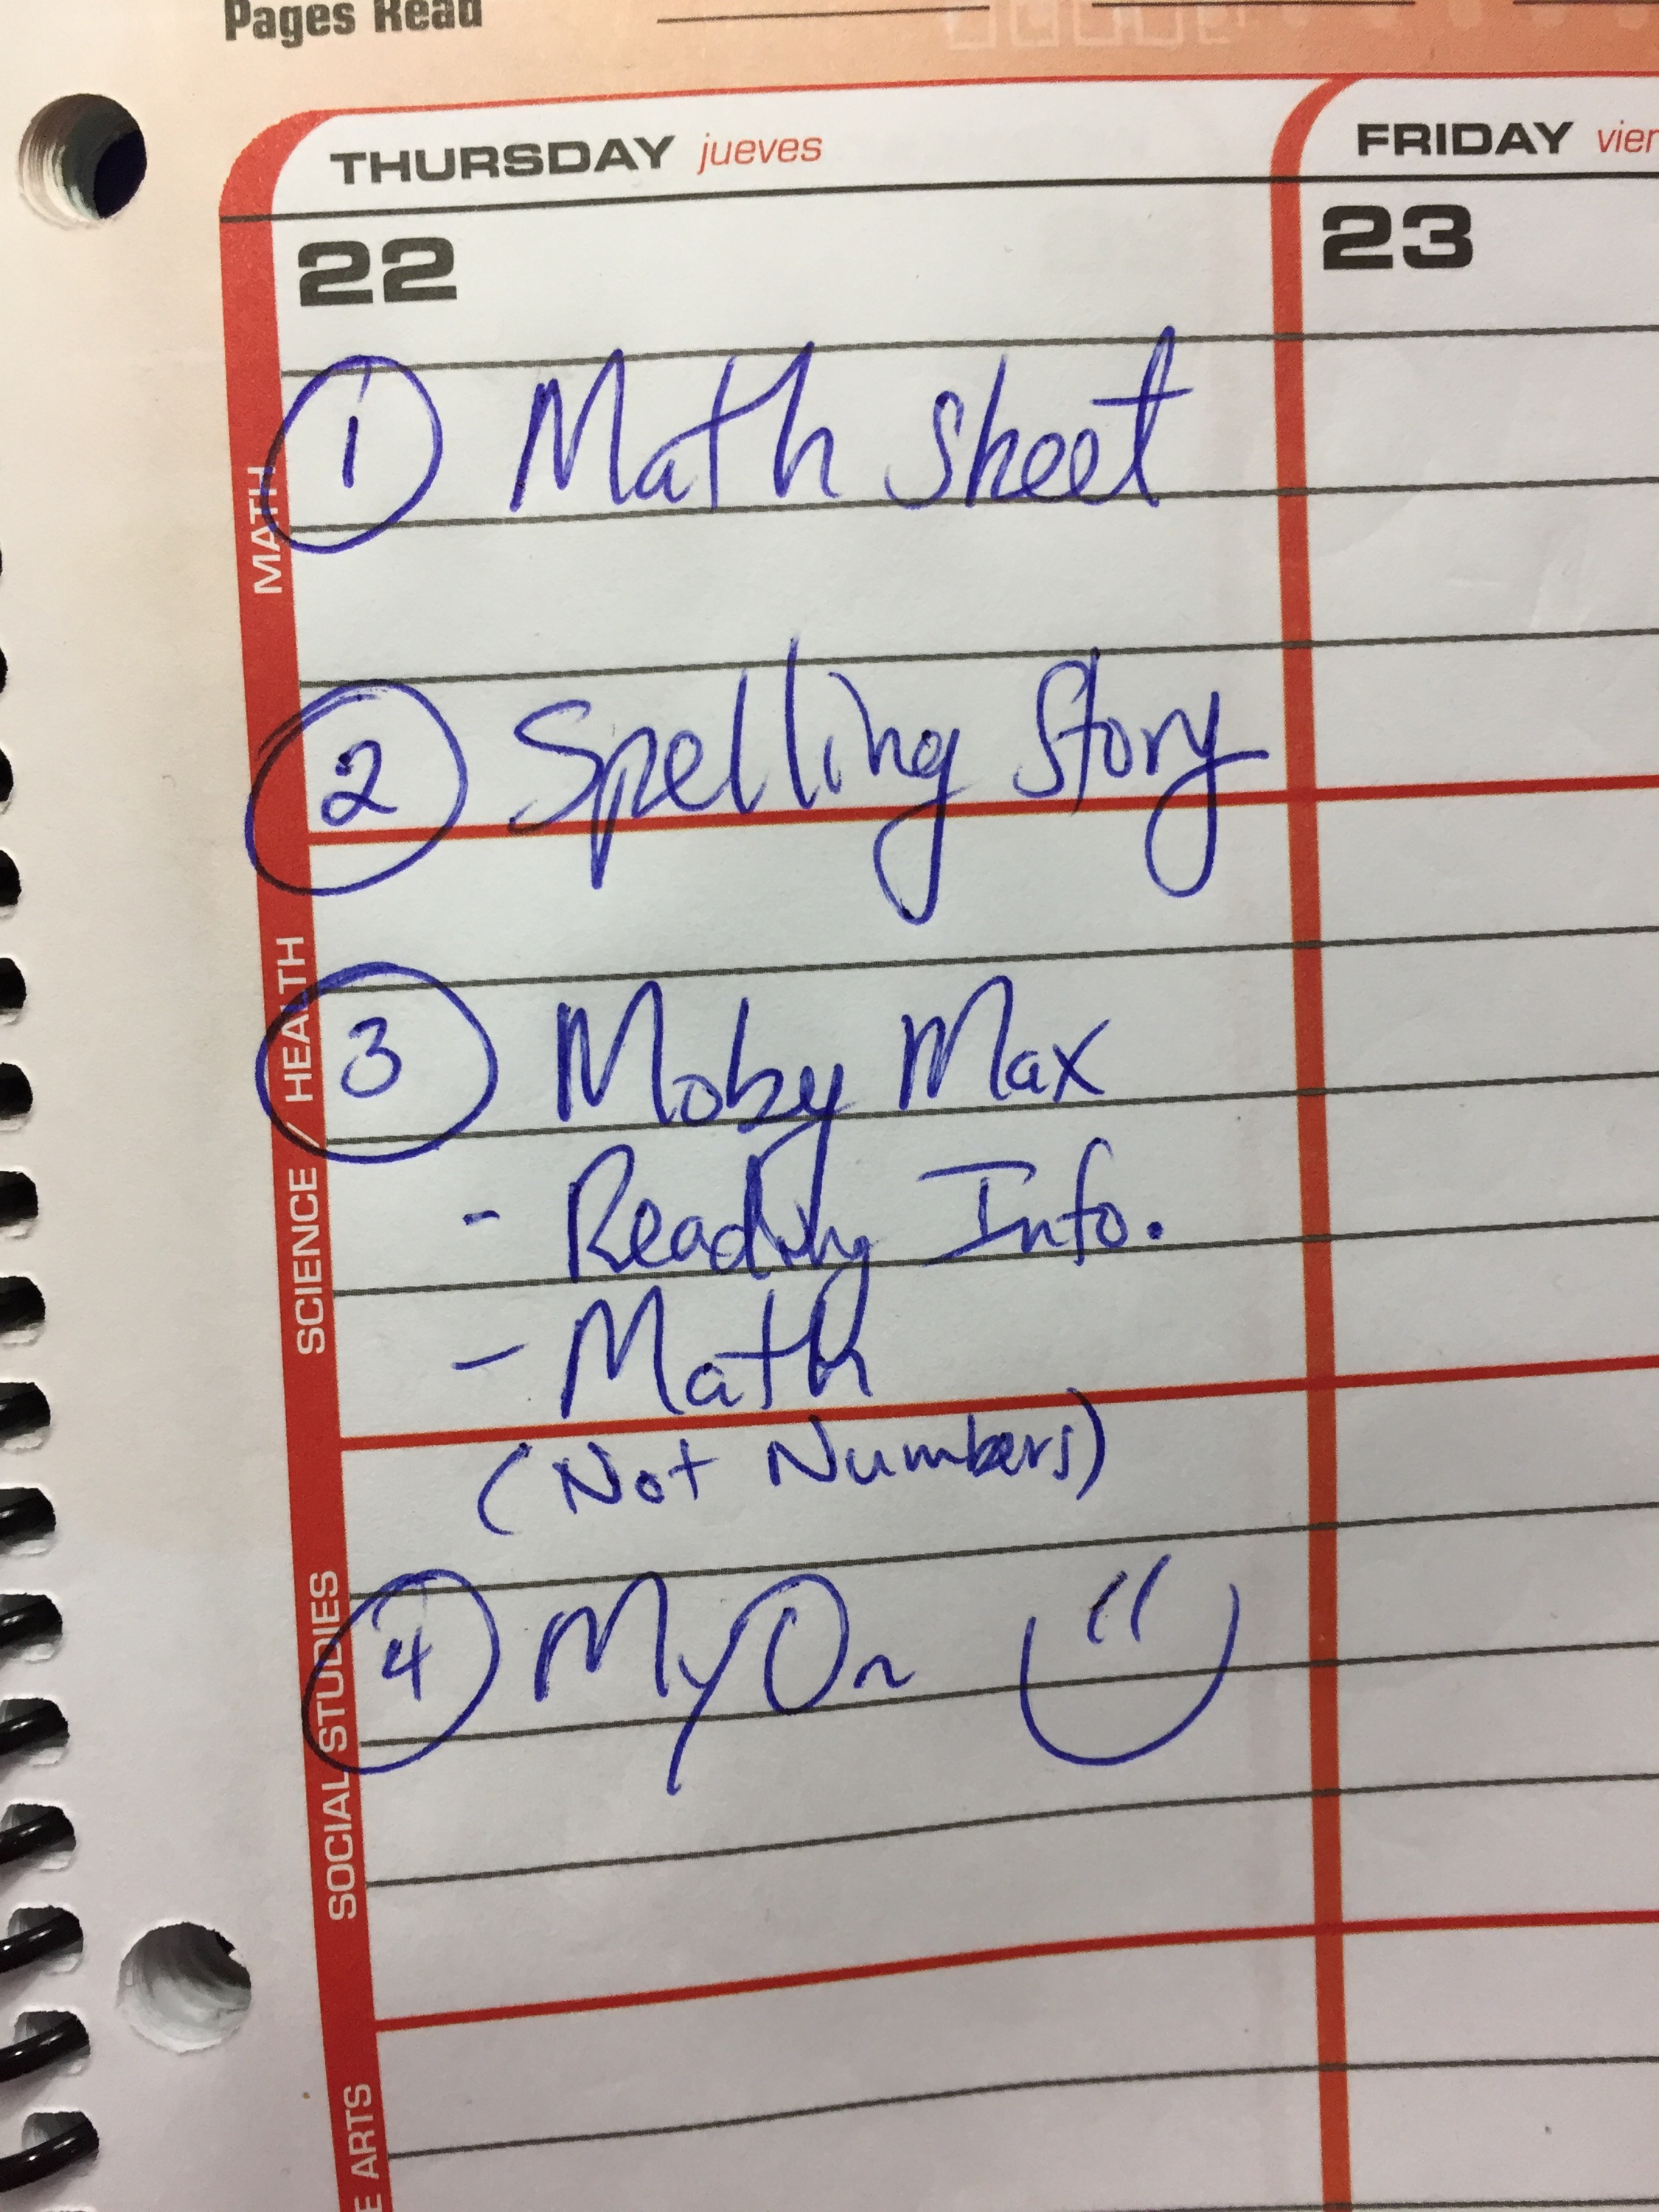 Pages Read
THURSDAY jueves
FRIDAY vier
22
23
MATH
1 Math sheet
2 Spelling Story
SCIENCE / HEALTH
3 Moby Max
- Reading Info.
- Math
(Not Numbers)
SOCIAL STUDIES
4 MyOn
E ARTS